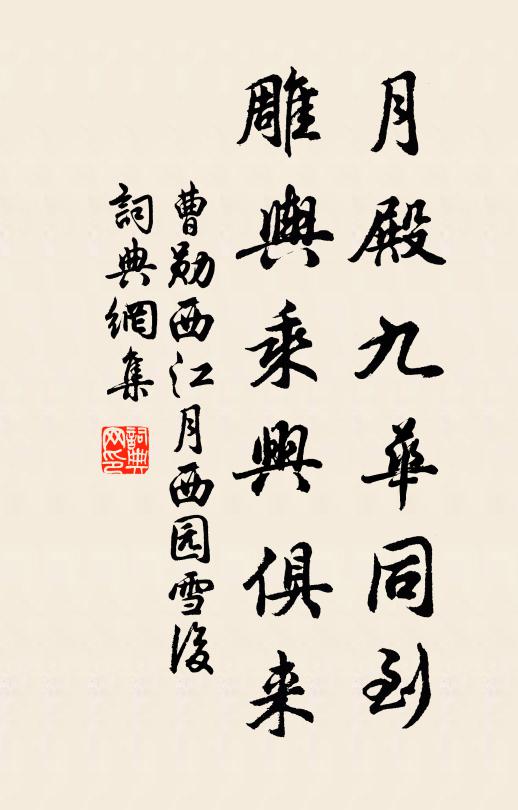 月殿九華同到
雕輿乘興俱來
曹勛西江月西园雪後
詞典網集
詞典网印